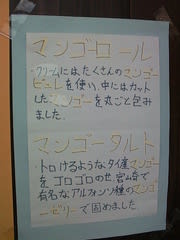 マンゴーロール
・クリームには、たくさんのマンゴー
ピュレを使い、中にはカット
したマンゴーを丸ごと包み
ました。
マンゴータルト
・トロけるようなタイ産マンゴー
をゴロゴロのせ 宮崎で
有名なアルフォンソ種のマンゴ
ーゼリーで固めました